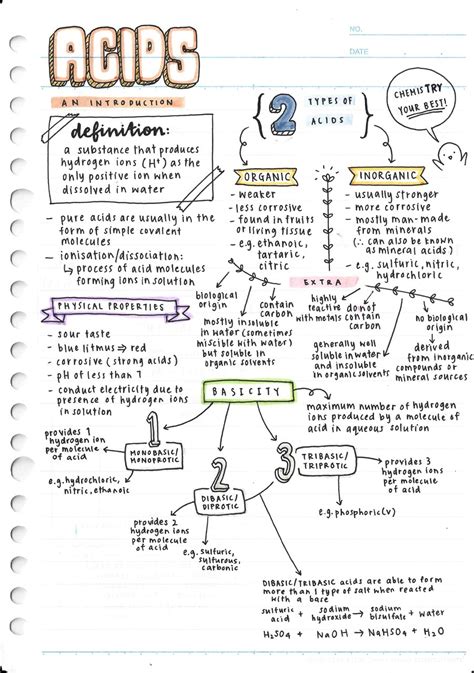 NO.
DATE
ACIDS
AN INTRODUCTION
definition:
a substance that produces
hydrogen ions (H⁺) as the
only positive ion when
dissolved in water
- pure acids are usually in the
form of simple covalent
molecules
- ionisation/dissociation:
↳ process of acid molecules
forming ions in solution
PHYSICAL PROPERTIES
- sour taste
- blue litmus ⇒ red
- corrosive (strong acids)
- pH of less than 7
- conduct electricity due to
presence of hydrogen ions
in solution
2
TYPES OF
ACIDS
CHEMISTRY
YOUR BEST!
ORGANIC
- weaker
- less corrosive
- found in fruits
or living tissue
- e.g. ethanoic,
tartaric,
citric
INORGANIC
- usually stronger
- more corrosive
- mostly man-made
from minerals
(∴ can also be known
as mineral acids)
- e.g. sulfuric, nitric,
hydrochloric
EXTRA
biological
origin
mostly insoluble
in water (sometimes
miscible with water)
but soluble in
organic solvents
contain
carbon
highly
reactive
with metals
generally well
soluble in water
and insoluble
in organic solvents
do not
contain
carbon
no
biological
origin
derived
from inorganic
compounds or
mineral sources
BASICITY
maximum number of hydrogen
ions produced by a molecule
of acid in aqueous solution
1
MONOBASIC/
MONOPROTIC
provides 1
hydrogen ion
per molecule
of acid
e.g. hydrochloric,
nitric, ethanoic
2
DIBASIC/
DIPROTIC
provides 2
hydrogen ions
per molecule
of acid
e.g. sulfuric,
sulfurous,
carbonic
3
TRIBASIC/
TRIPROTIC
provides 3
hydrogen ions
per molecule
of acid
e.g. phosphoric (v)
DIBASIC/TRIBASIC acids are able to form
more than 1 type of salt when reacted
with a base
sulfuric acid + sodium hydroxide → sodium bisulfate + water
H₂SO₄ + NaOH → NaHSO₄ + H₂O